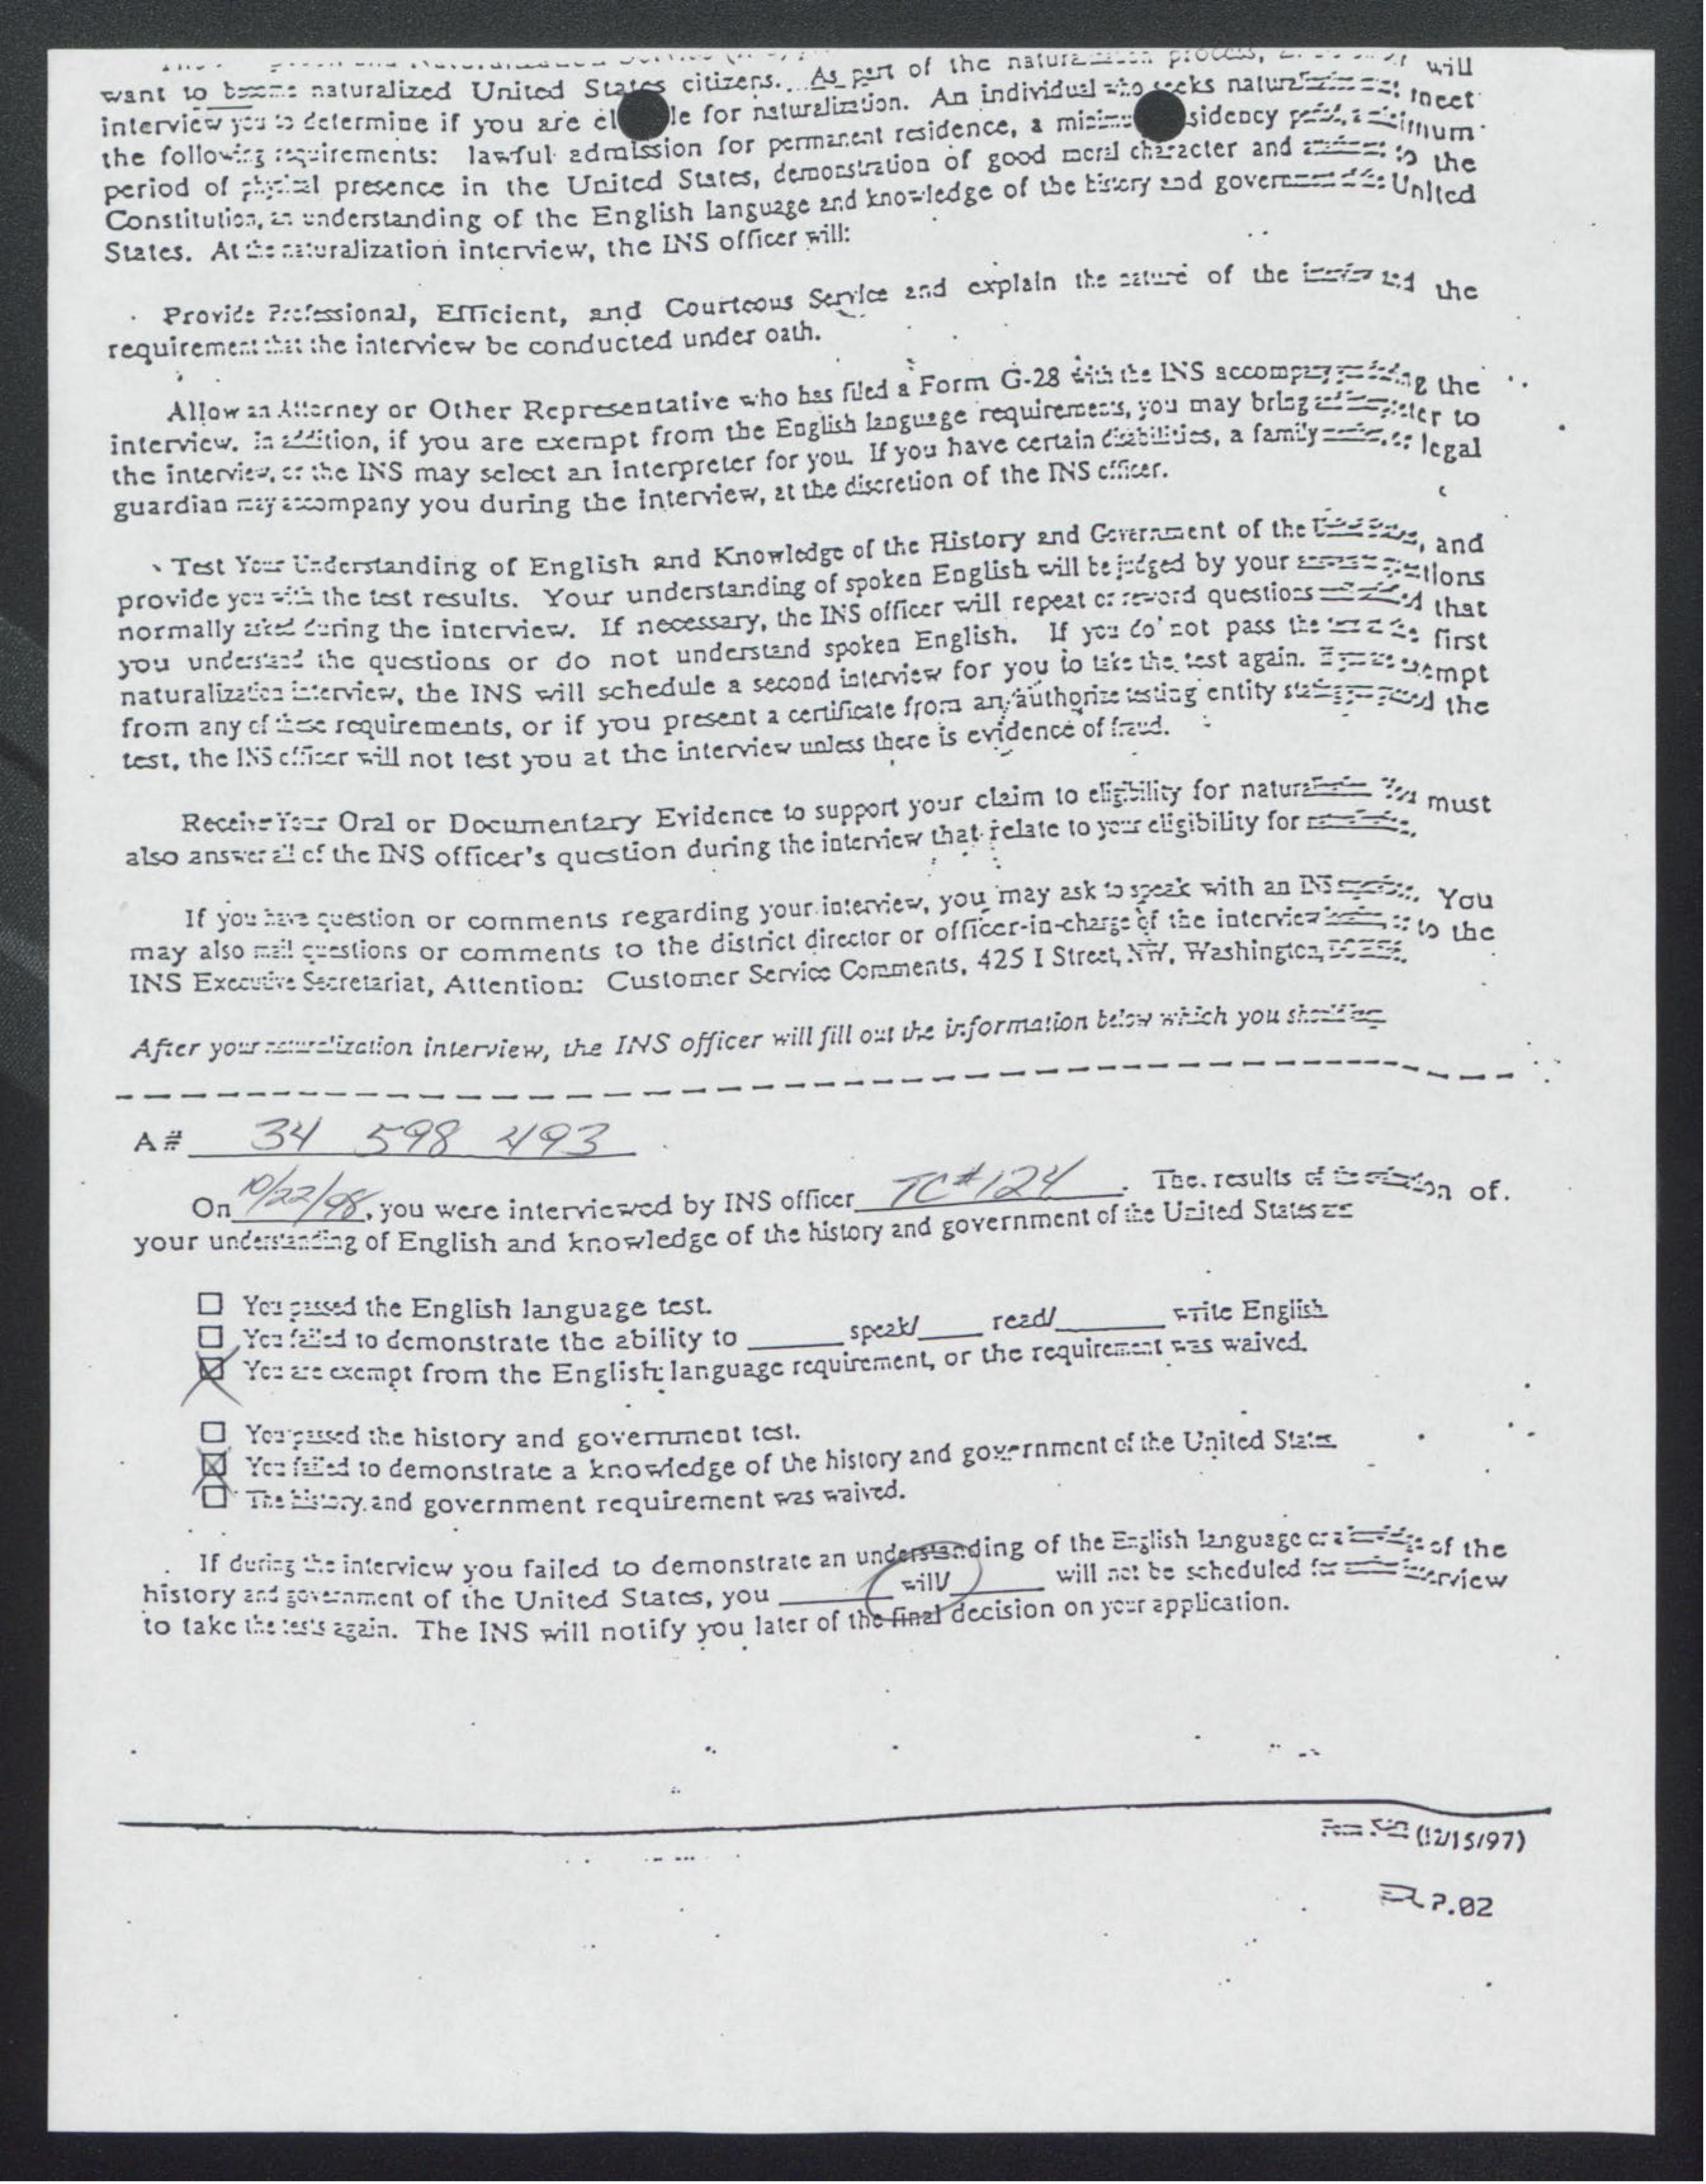 want to naturalized United States citizens. As part of the process, will
interview you to determine if you are for naturalization. An individual who seeks meet
the following requirements: lawful admission for permanent residence, a
period of physical presence in the United States, demonstration of good moral character and to the
Constitution, an understanding of the English language and knowledge of the history and United
States. At the naturalization interview, the INS officer will:
Provide Professional, Efficient, and Courteous Service and explain the nature of the and the
requirement that the interview be conducted under oath.
Allow an Attorney or Other Representative who has filed a Form G-28 with the INS the
interview. In addition, if you are exempt from the English language requirements, you may bring to
the interview, or the INS may select an interpreter for you. If you have certain disabilities, a family legal
guardian may accompany you during the interview, at the discretion of the INS officer.
Test Your Understanding of English and Knowledge of the History and Government of the and
provide you with the test results. Your understanding of spoken English will be judged by your
normally asked during the interview. If necessary, the INS officer will repeat or reword questions that
you understand the questions or do not understand spoken English. If you do not pass the first
naturalization interview, the INS will schedule a second interview for you to take the test again.
from any of these requirements, or if you present a certificate from an authorize testing entity the
test, the INS officer will not test you at the interview unless there is evidence of fraud.
Receive Your Oral or Documentary Evidence to support your claim to eligibility for You must
also answer all of the INS officer's question during the interview that relate to your eligibility for
If you have question or comments regarding your interview, you may ask to speak with an INS You
may also mail questions or comments to the district director or officer-in-charge of the interview to the
INS Executive Secretariat, Attention: Customer Service Comments, 425 I Street, NW, Washington,
After your naturalization interview, the INS officer will fill out the information below which you
A# 34 598 493
On 10/22/98, you were interviewed by INS officer TC#124. The results of of.
your understanding of English and knowledge of the history and government of the United States
You passed the English language test.
You failed to demonstrate the ability to speak/ read/ write English
You are exempt from the English language requirement, or the requirement was waived.
You passed the history and government test.
You failed to demonstrate a knowledge of the history and government of the United States
The history and government requirement was waived.
If during the interview you failed to demonstrate an understanding of the English language of the
history and government of the United States, you will/ will not be scheduled
to take the tests again. The INS will notify you later of the final decision on your application.
(12/15/97)
P.02